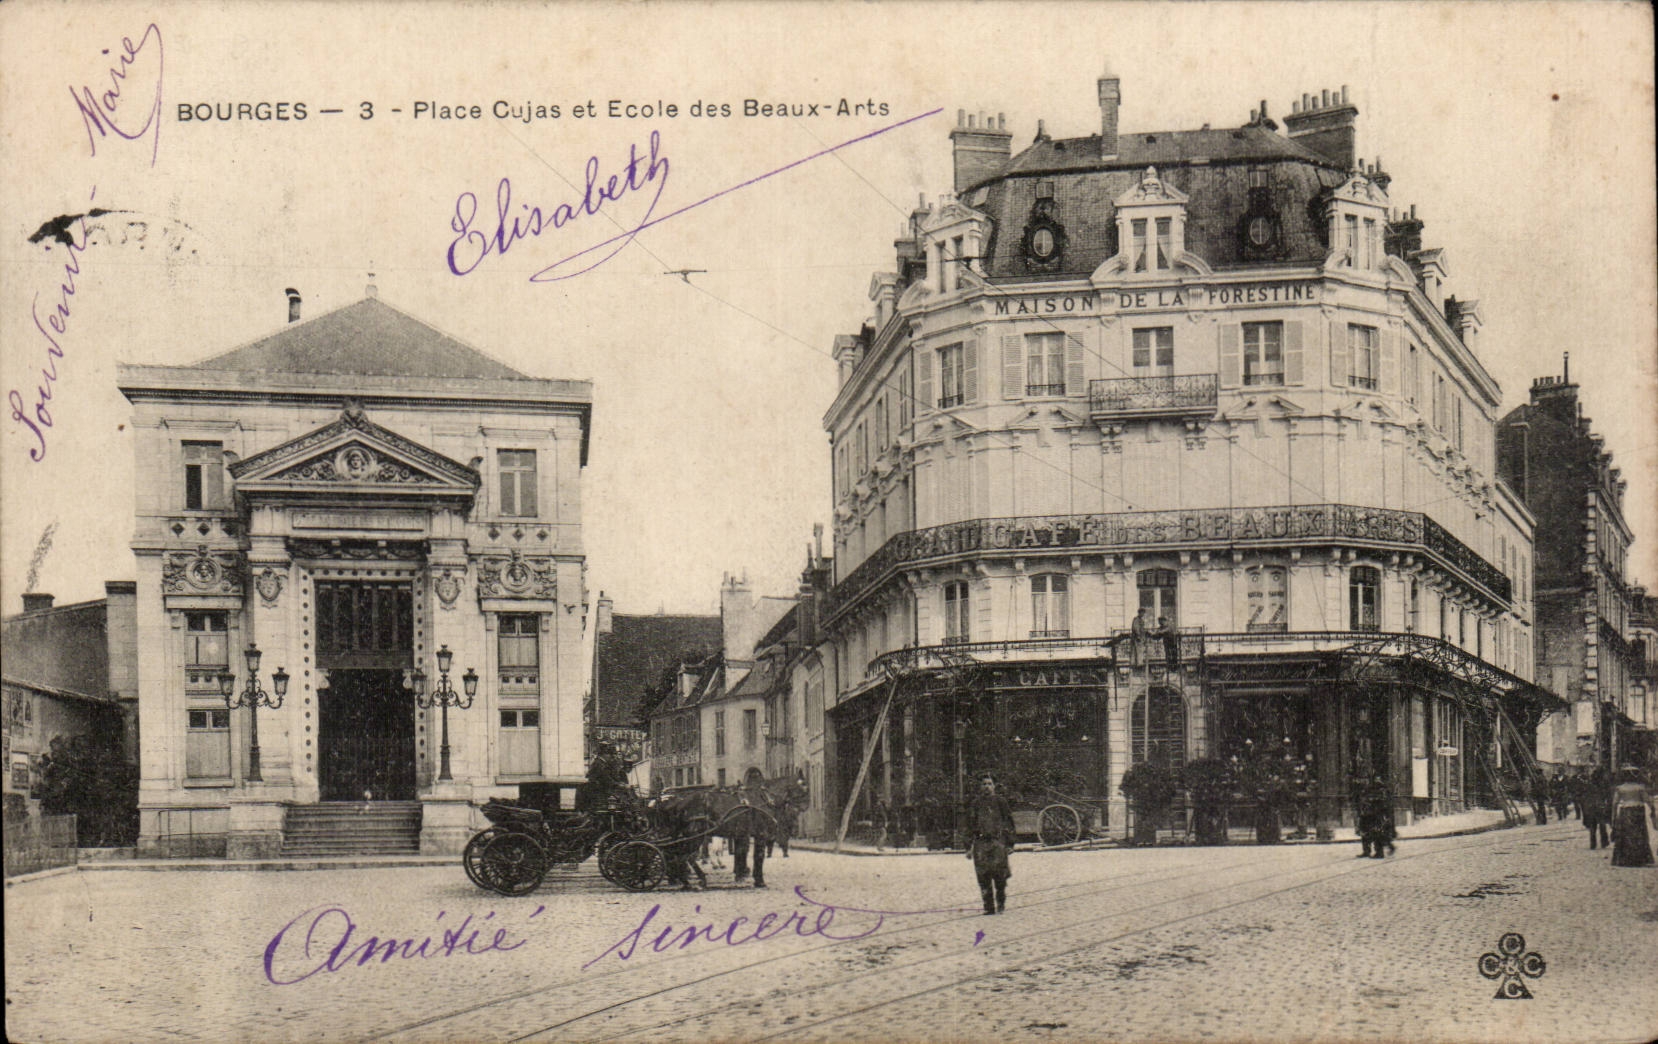 BOURGES — 3 - Place Cujas et Ecole des Beaux-Arts
Souvenir
Marie
Elisabeth
MAISON DE LA FORESTINE
GRAND CAFÉ DES BEAUX ARTS
CAFÉ
Amitié sincère.
C
C & C
C